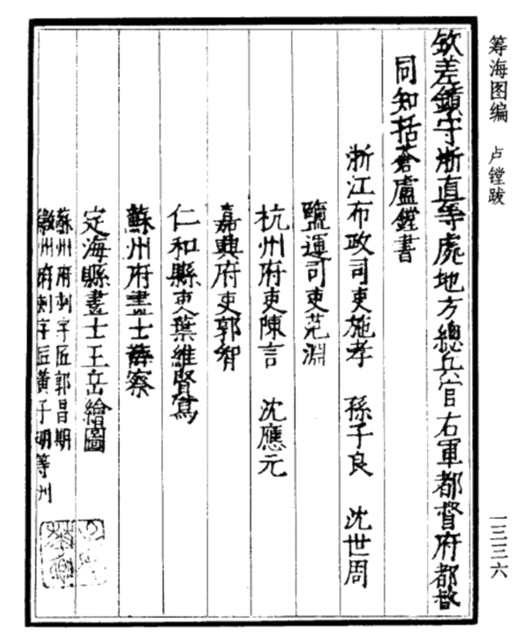 筹海图编 卢镗跋
一三三六
欽差鎮守浙直等處地方總兵官右軍都督府都督
同知括蒼盧鏜書
浙江布政司吏施孝 孫子良 沈世周
鹽運司吏范淵
杭州府吏陳言 沈應元
嘉興府吏郭智
仁和縣吏葉維賢寫
蘇州府畫士薛察
定海縣畫士王岳繪圖
蘇州府刺字匠郭昌期
徽州府刺字匠黃子明等刊